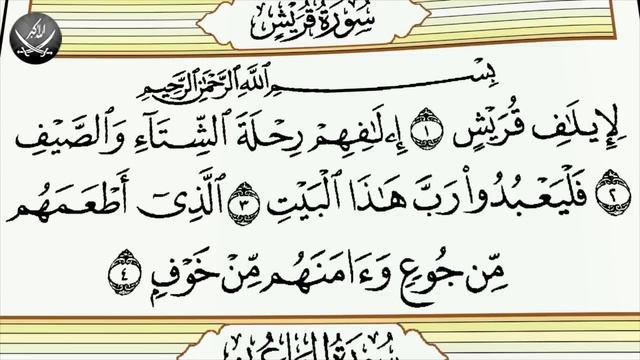 سُورَةُ قُرَيْشٍ
بِسْمِ اللَّهِ الرَّحْمَٰنِ الرَّحِيمِ
لِإِيلَافِ قُرَيْشٍ ١ إِۦلَافِهِمْ رِحْلَةَ الشِّتَآءِ وَالصَّيْفِ
٢ فَلْيَعْبُدُوا۟ رَبَّ هَٰذَا الْبَيْتِ ٣ الَّذِىٓ أَطْعَمَهُم
مِّن جُوعٍ وَءَامَنَهُم مِّنْ خَوْفٍ ٤
سُورَةُ الْمَاعُونِ